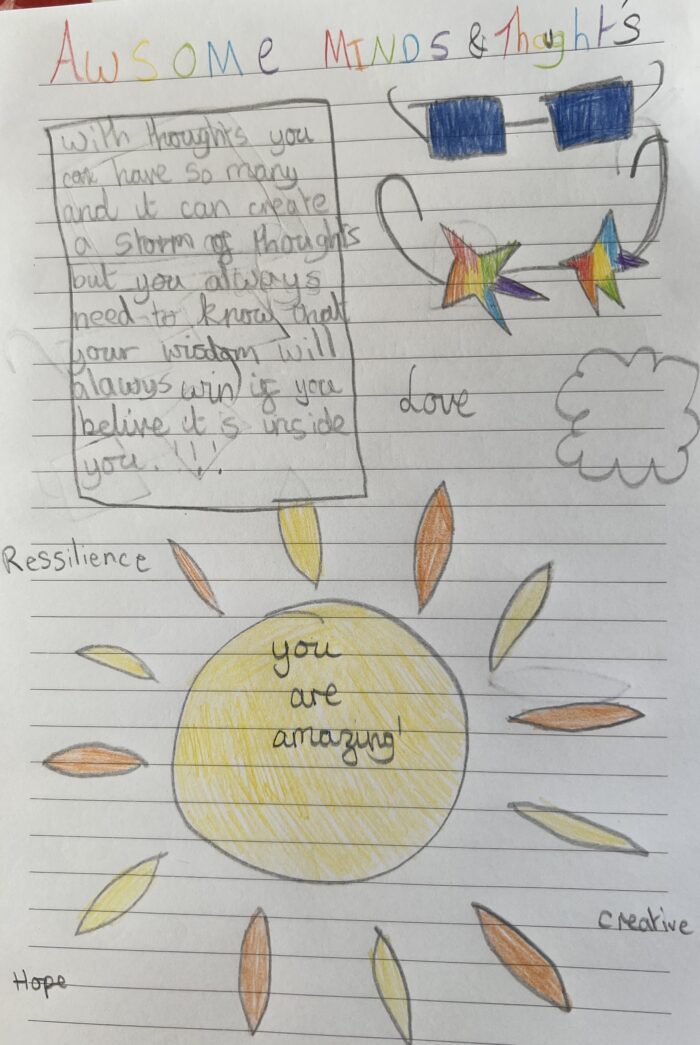 AWSOME MINDS & Thought's
with thoughts you
can have so many
and it can create
a storm of thoughts
but you always
need to know that
your wisdom will
alawys win if you
belive it s inside
you. !!!
Love
Ressilience
you
are
amazing!
Creative
Hope